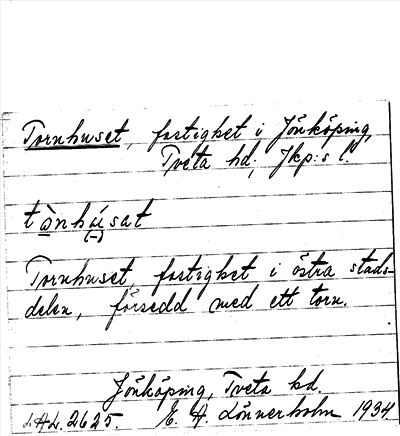 Tornhuset, fastighet i Jönköping,
Tveta hd; Jkp:s l.
tò̱nhú̱sat
(-)
Tornhuset, fastighet i östra stads-
delen, försedd med ett torn.
Jönköping, Tveta hd.
LAL. 2625. E. A. Lönnerholm 1934